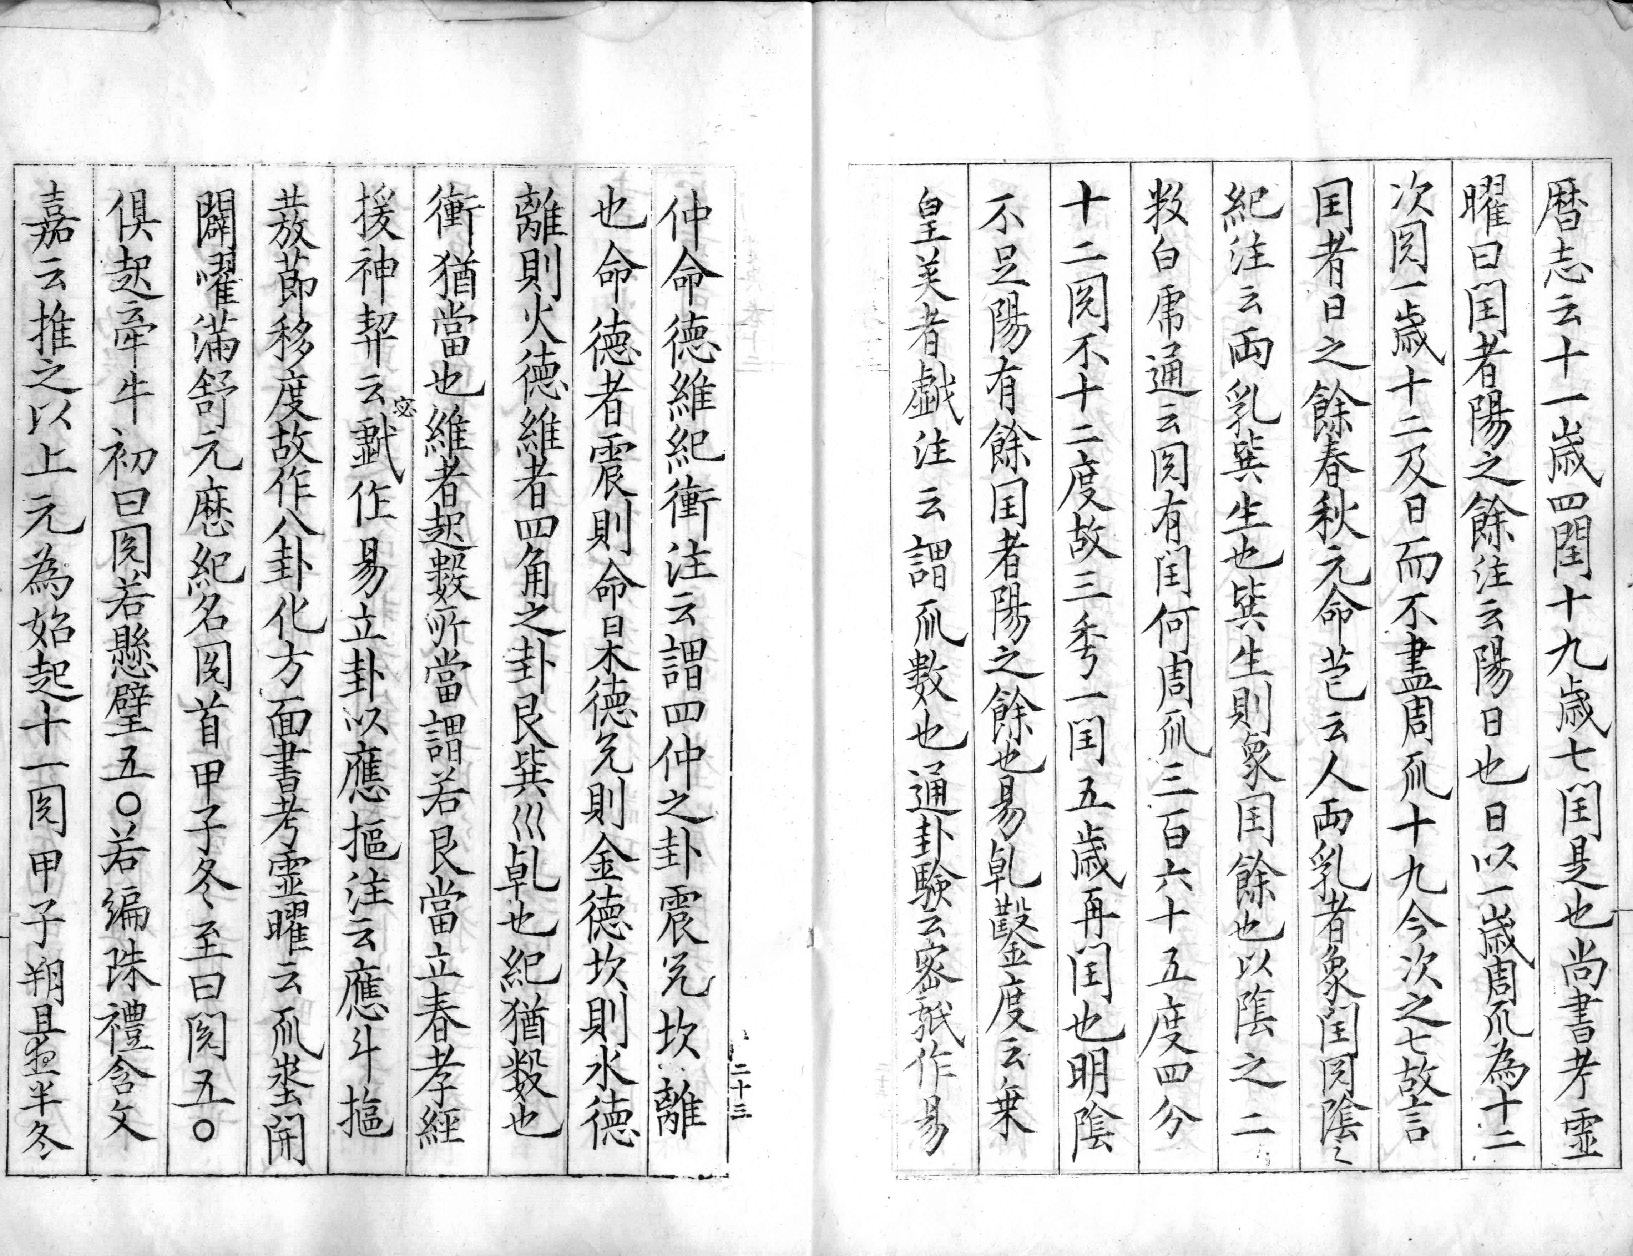 暦志云十一歳四閏十九歳七閏是也尚書考霊
曜曰閏者陽之餘注云陽日也日以一歳周𠀑為十二
次囝一歳十二及日而不盡周𠀑十九今次之七故言
閏者日之餘春秋元命苞云人両乳者象閏囝陰之
紀注云両乳巽生也巽生則象閏餘也以陰之二
数白席通云囝有閏何周𠀑三百六十五度四分
十二囝不十二度故三秊一閏五歳再閏也明陰
不足陽有餘閏者陽之餘也易乹鑿度云乗
皇英者戯注云謂𠀑數也通卦験云密戯作易
仲命徳維紀衝注云謂四仲之卦震兊坎離
也命徳者震則命曰木徳兊則金徳坎則水徳
離則火徳維者四角之卦艮巽巛乹也紀猶數也
衝猶當也維者起數所當謂若艮當立春孝經
援神契云宓戯作易立卦以應摳注云應斗摳
蕟節移度故作八卦化方面書考霊曜云𠀑埊開
闢曜満舒元暦紀名囝首甲子冬至日囝五〇
倶起牽牛初日囝若懸璧五〇若編珠禮含文
嘉云推之以上元為始起十一囝甲子朔旦夜半冬
二十三